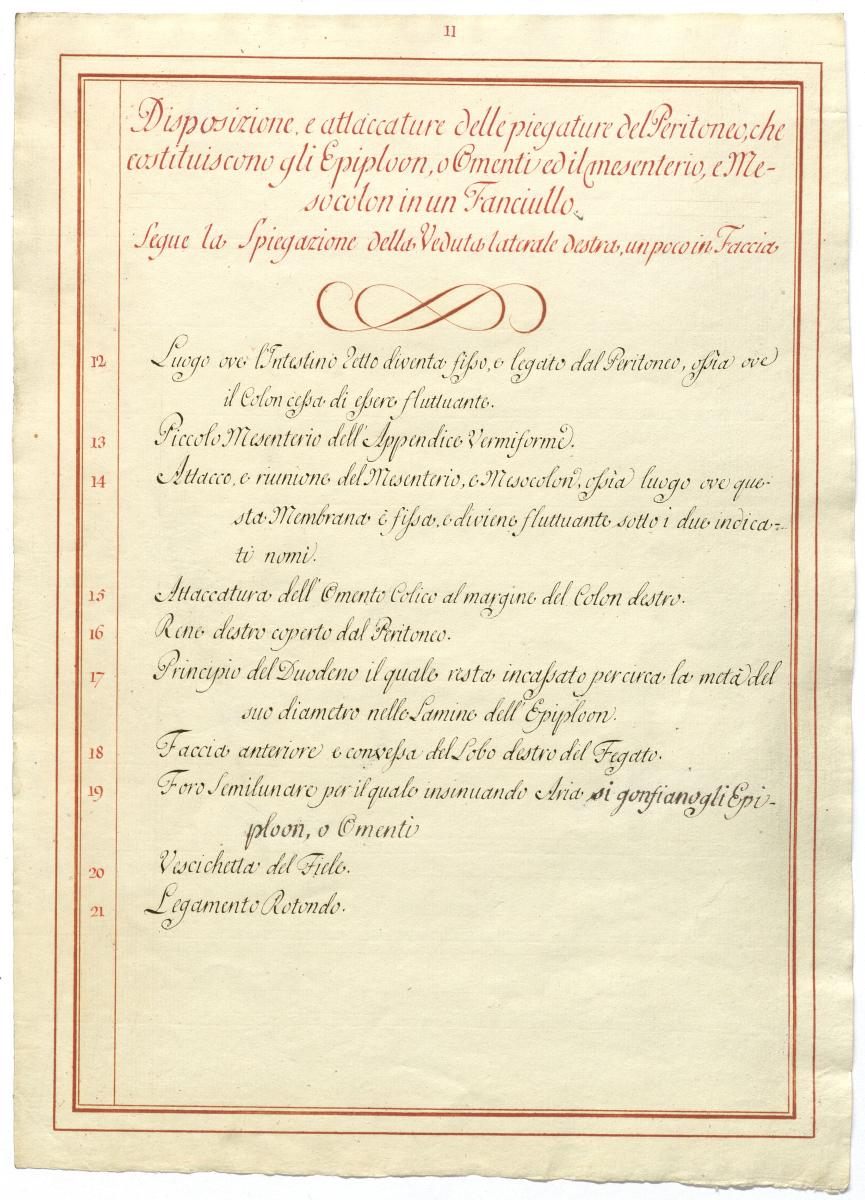 11
Disposizione, e attaccature delle piegature del Peritoneo, che
costituiscono gli Epiploon, o Omenti ed il mesenterio, e Me-
socolon in un Fanciullo.
Segue la Spiegazione della Veduta laterale destra, un poco in Faccia
12 Luogo ove l'Intestino Retto diventa fisso, e legato dal Peritoneo, ossia ove
il Colon cessa di essere fluttuante.
13 Piccolo Mesenterio dell'Appendice Vermiforme.
14 Attacco, e riunione del Mesenterio, e Mesocolon, ossia luogo ove que-
sta Membrana è fissa, e diviene fluttuante sotto i due indica-
ti nomi.
15 Attaccatura dell'Omento Colico al margine del Colon destro.
16 Rene destro coperto dal Peritoneo.
17 Principio del Duodeno il quale resta incassato per circa la metà del
suo diametro nelle Lamine dell'Epiploon.
18 Faccia anteriore e convessa del Lobo destro del Fegato.
19 Foro Semilunare per il quale insinuando Aria si gonfiano gli Epi-
ploon, o Omenti
20 Vescichetta del Fiele.
21 Legamento Rotondo.